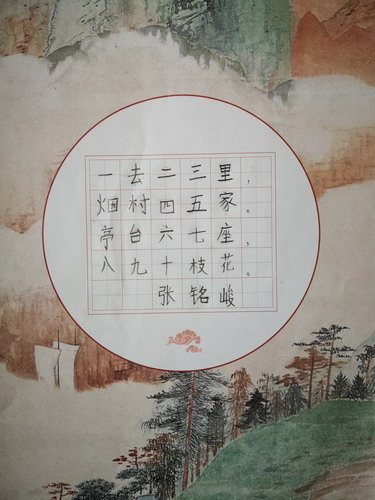 一去二三里，
烟村四五家。
亭台六七座，
八九十枝花。
张铭峻